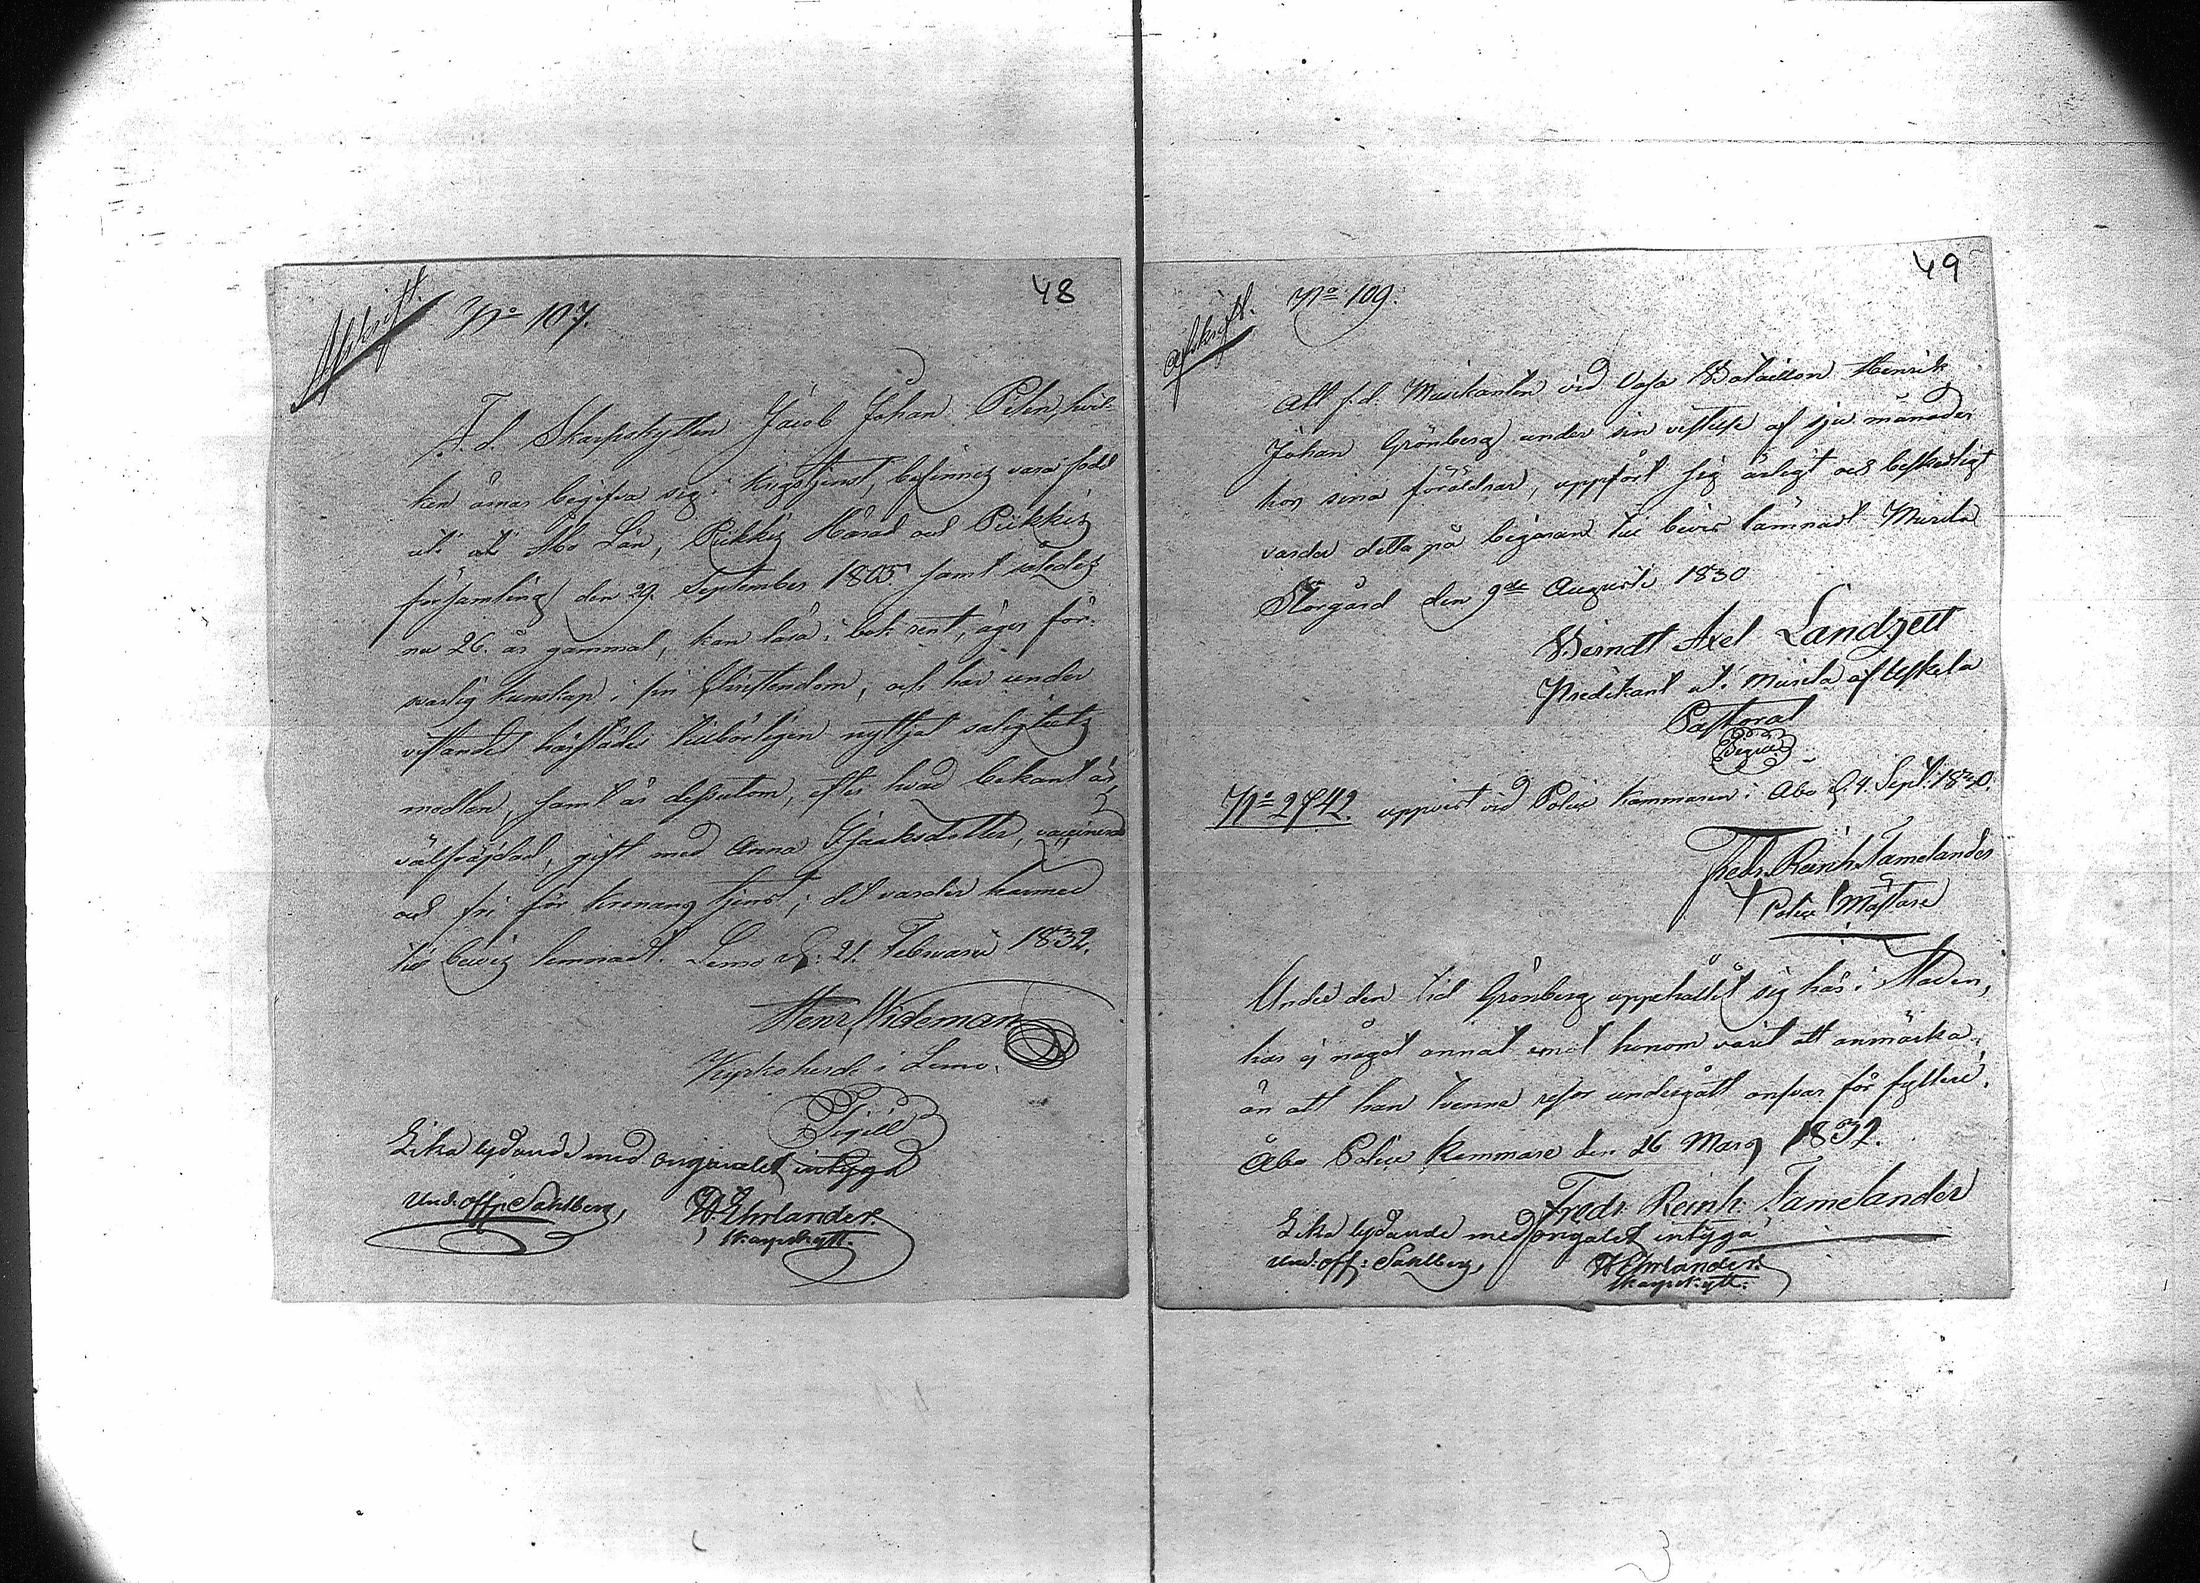 48
Afskrift.
No 107.
F. d. Skarpskytten Jacob Johan Pelen, hvil-
ken ärnar begifva sig i Krigstjenst, befinnes vara född
uti Åbo Län, Pikkis Härad och Piikkis
församling den 29. September 1805 samt således
nu 26. år gammal, kan läsa i bok rent, äger för-
svarlig kunskap i sin Christendom, och har under
vistandet härstädes tillbörligen nyttjat salighets
medlen, samt är dessutom, efter hvad bekant är,
välfräjdad, gift med Anna Isaaksdotter, vaccinerad
och fri för kronans tjenst; det varder härmed
till bewis lemnadt. Lemo d. 21. Februarii 1832.
Henr. Wideman
Kyrkoherde i Lemo.
Sigill
Lika lydande med originalet intyga
Und: off: Sahlberg,
W. Ehrlander.
Skarpskytt.
49
Afskrift.
No 109.
Att f. d. Musikanten vid Vasa Bataillon Henrik
Johan Grönberg under sin vistelse af sju månader
hos sina föräldrar, uppfört sig ärligt och beskedligt
varder detta på begäran till bevis lämnadt Murila
Storgård den 9de Augusti 1830
Berndt Axel Landzett
Predikant uti Murila af Uskela
Pastorat
Sigill
No 2742. uppvist vid Police Kammaren i Åbo d. 4. Sept. 1830.
Fredr. Reinh. Tamelander
Police Mästare
Under den tid Grönberg uppehållit sig här i Staden,
har ej något annat emot honom varit att anmärka
än att han tvenne resor undergått ansvar för fylleri.
Åbo Police Kammare den 26 Mars 1832.
Fredr. Reinh. Tamelander
Lika lydande med orgalet intyga
Und: off: Sahlberg,
W. Ehrlander.
Skarpskytt.